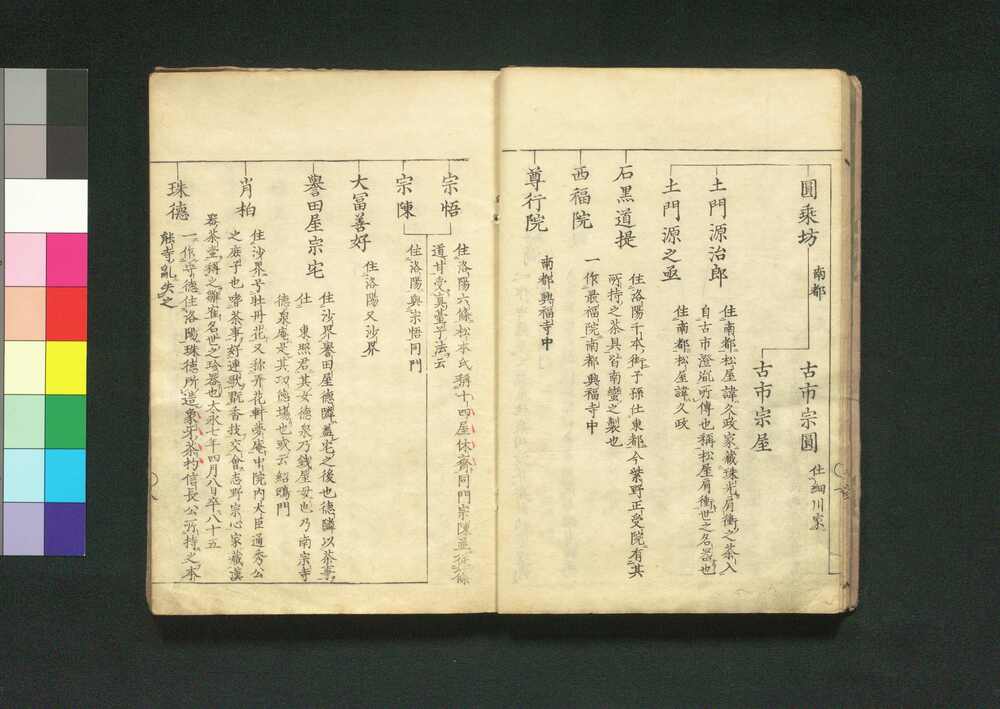 圓乘坊
南都
古市宗圓
仕細川家
古市宗屋
土門源治郎
住南都松屋諱久政家藏珠光肩衝之茶入
自古市澄胤所傳也稱松屋肩衝世之名器也
土門源之亟
住南都松屋諱久政
石黒道提
住洛陽千本街子孫仕東都今紫野正受院有其
所持之茶具皆南蠻之製也
西福院
一作最福院南都興福寺中
尊行院
南都興福寺中
宗悟
住洛陽六條松本氏稱十四屋休齋同門宗陳並從
道甘受真臺子法云
宗陳
住洛陽與宗悟同門
大冨善好
住洛陽又沙界
譽田屋宗宅
住沙界譽田屋德隣蓋宅之後也德隣以茶事
仕 東照君其女德泉乃錢屋母也乃南宗寺
德泉庵是其功德場也或云紹鷗門
肖柏
住沙界号牡丹花又称弄花軒夢庵中院内大臣通秀公
之庶子也嗜茶事好連歌翫香技交會志野宗心家藏漢
器茶壺稱之雛雀名世之珍器也大永七年四月八日卒八十五
珠德
一作守德住洛陽珠德所造象牙茶杓信長公所持之本
能寺乱失之